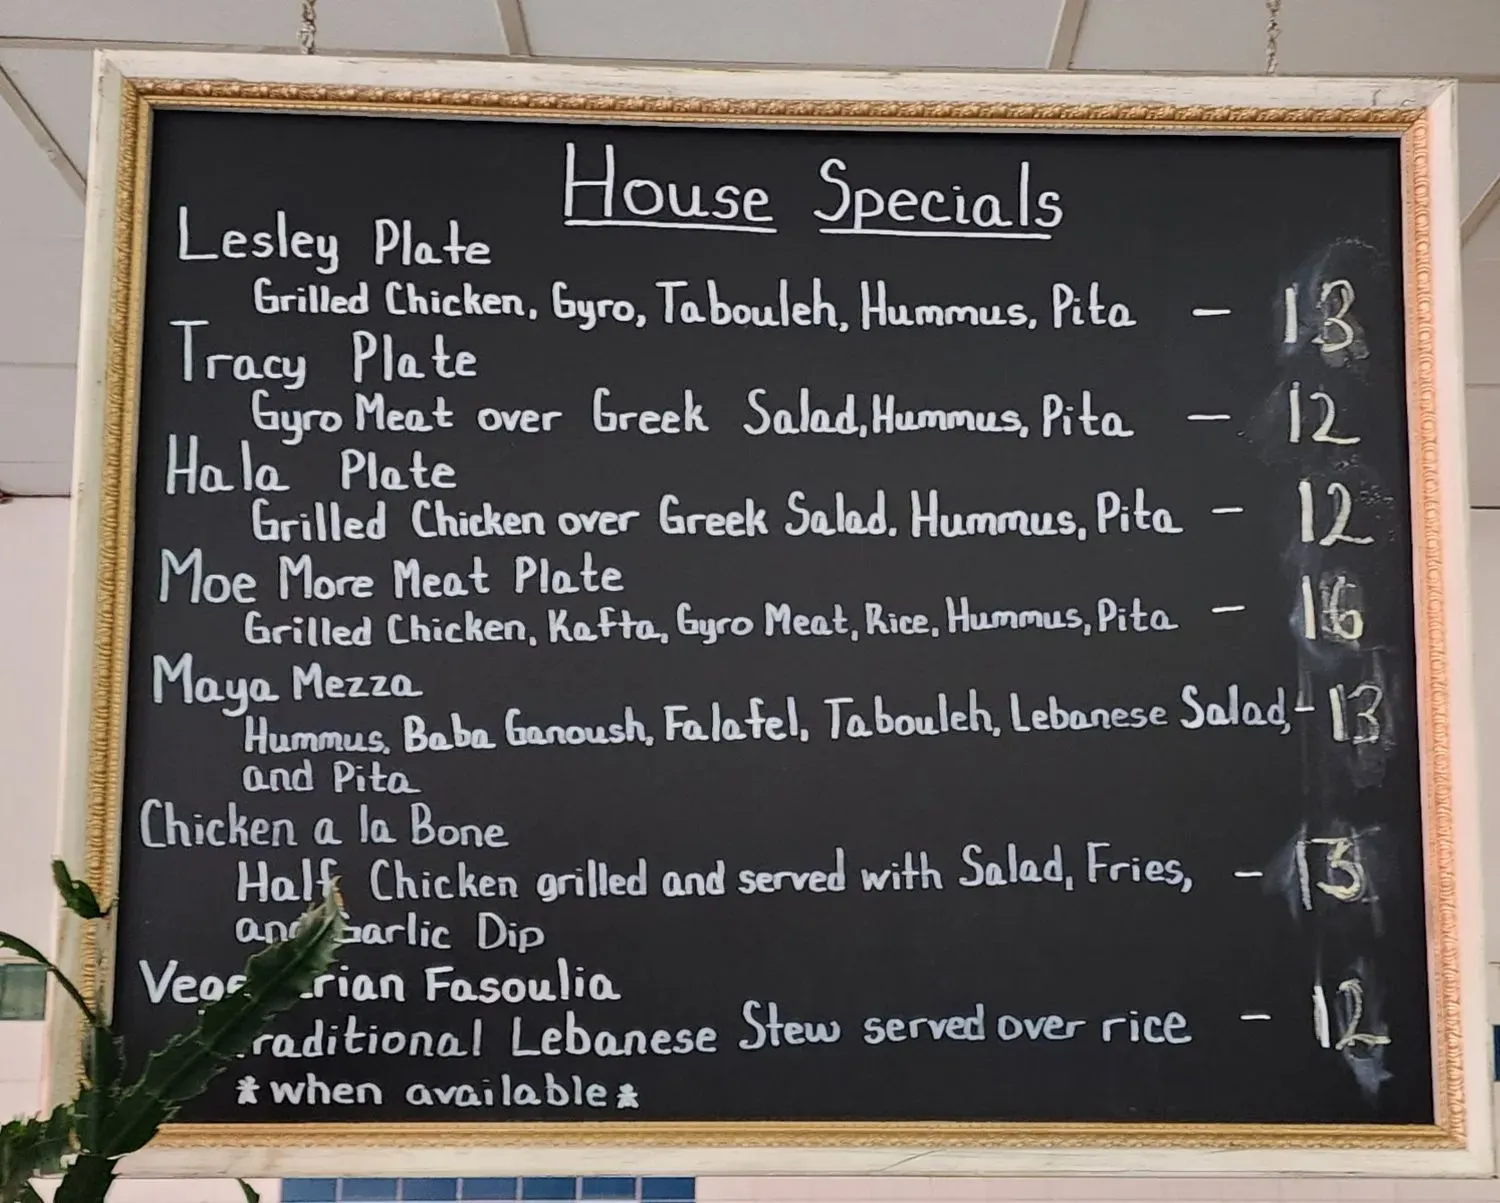 House Specials
Lesley Plate
Grilled Chicken, Gyro, Tabouleh, Hummus, Pita — 13
Tracy Plate
Gyro Meat over Greek Salad, Hummus, Pita — 12
Hala Plate
Grilled Chicken over Greek Salad. Hummus, Pita — 12
Moe More Meat Plate
Grilled Chicken, Kafta, Gyro Meat, Rice, Hummus, Pita — 16
Maya Mezza
Hummus, Baba Ganoush, Falafel, Tabouleh, Lebanese Salad, - 13
and Pita
Chicken a la Bone
Half Chicken grilled and served with Salad, Fries, — 13
and Garlic Dip
Vegetarian Fasoulia
Traditional Lebanese Stew served over rice — 12
*when available*